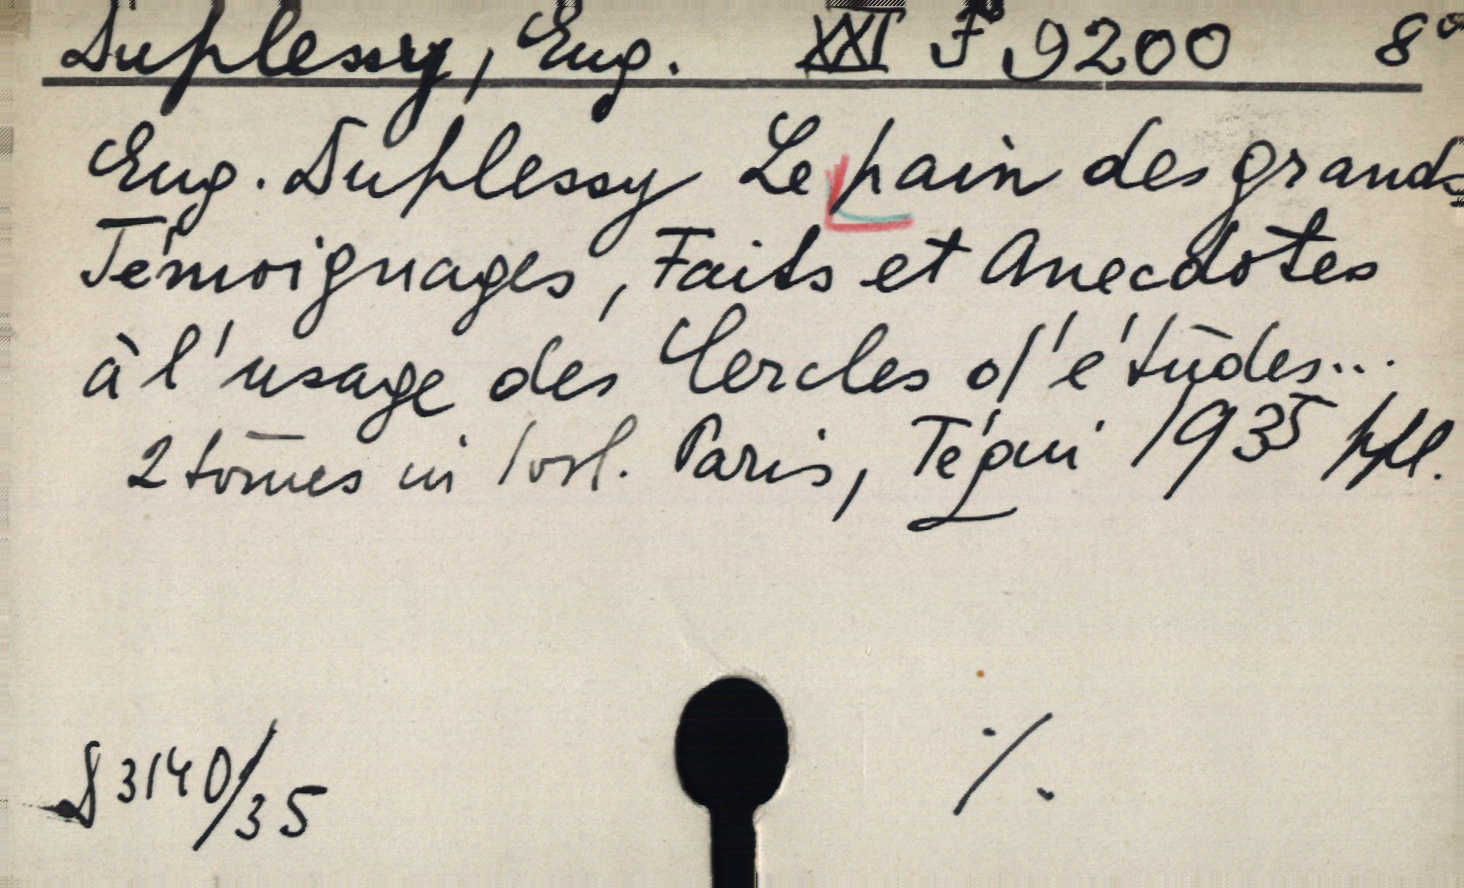 Duplessy, Eug. XXI F 9200 8°
Eug. Duplessy Le pain des grands
Témoignages, Faits et Anecdotes
à l'usage des Cercles d'études...
2 tomes in 1 vol. Paris, Téqui 1935
S 3140/35
./.